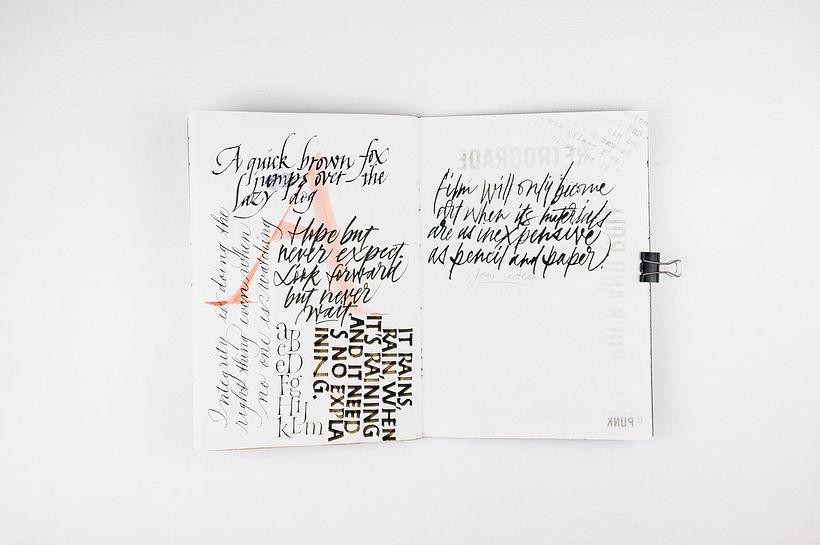 A quick brown fox
jumps over the
lazy dog
Hope but
never expect.
Look forward
but never
wait.
Integrity is doing the
right thing even when
no one is watching
aB
c
eD
Fg
HiJ
kLm
IT RAINS,
RAIN, WHEN
IT'S RAINING
AND IT NEED
S NO EXPLA
INING.
film will only become
art when its materials
are as inexpensive
as pencil and paper.
Jean Cocteau
RETROGRADE
ROCK AND ROLL
PUNK